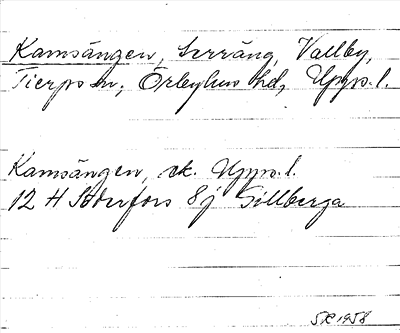 Kamsängen, terräng, Vallby,
Tierps sn, Örbyhus hd, Upps. l.
Kamsängen, ek. Upps. l.
12 H Söderfors 8 j Gillberga
SR 1958